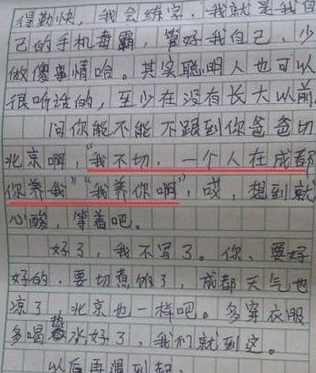 得勤快，我会练字，我就是我自
己的手机毒霸，管好我自己，少
做傻事情哈。其实聪明人也可以
很哈的，至少在没有长大以前
问你能不能不跟到你爸爸切
北京啊，“我不切，一个人在成都
你养我”“我养你啊”，哎，想到就
心酸，等着吧。
好了，我不写了。你，要好
好的，要切煮饭了，成都天气也
凉了，北京也一样吧。多穿衣服
多喝热水好了，我们就到这。
以后再遇到起